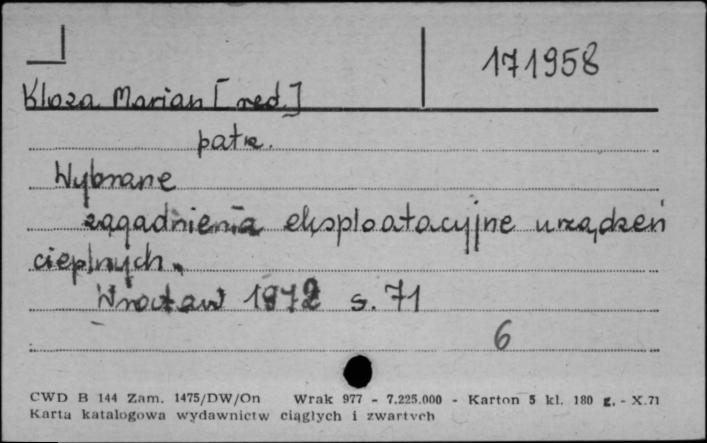 171958
Kloza Marian [red.]
patrz.
Wybrane
zagadnienia eksploatacyjne urządzeń
cieplnych.
Wrocław 1972 s. 71
6
CWD B 144 Zam. 1475/DW/On Wrak 977 - 7.225.000 - Karton 5 kl. 180 g. - X.71
Karta katalogowa wydawnictw ciągłych i zwartych